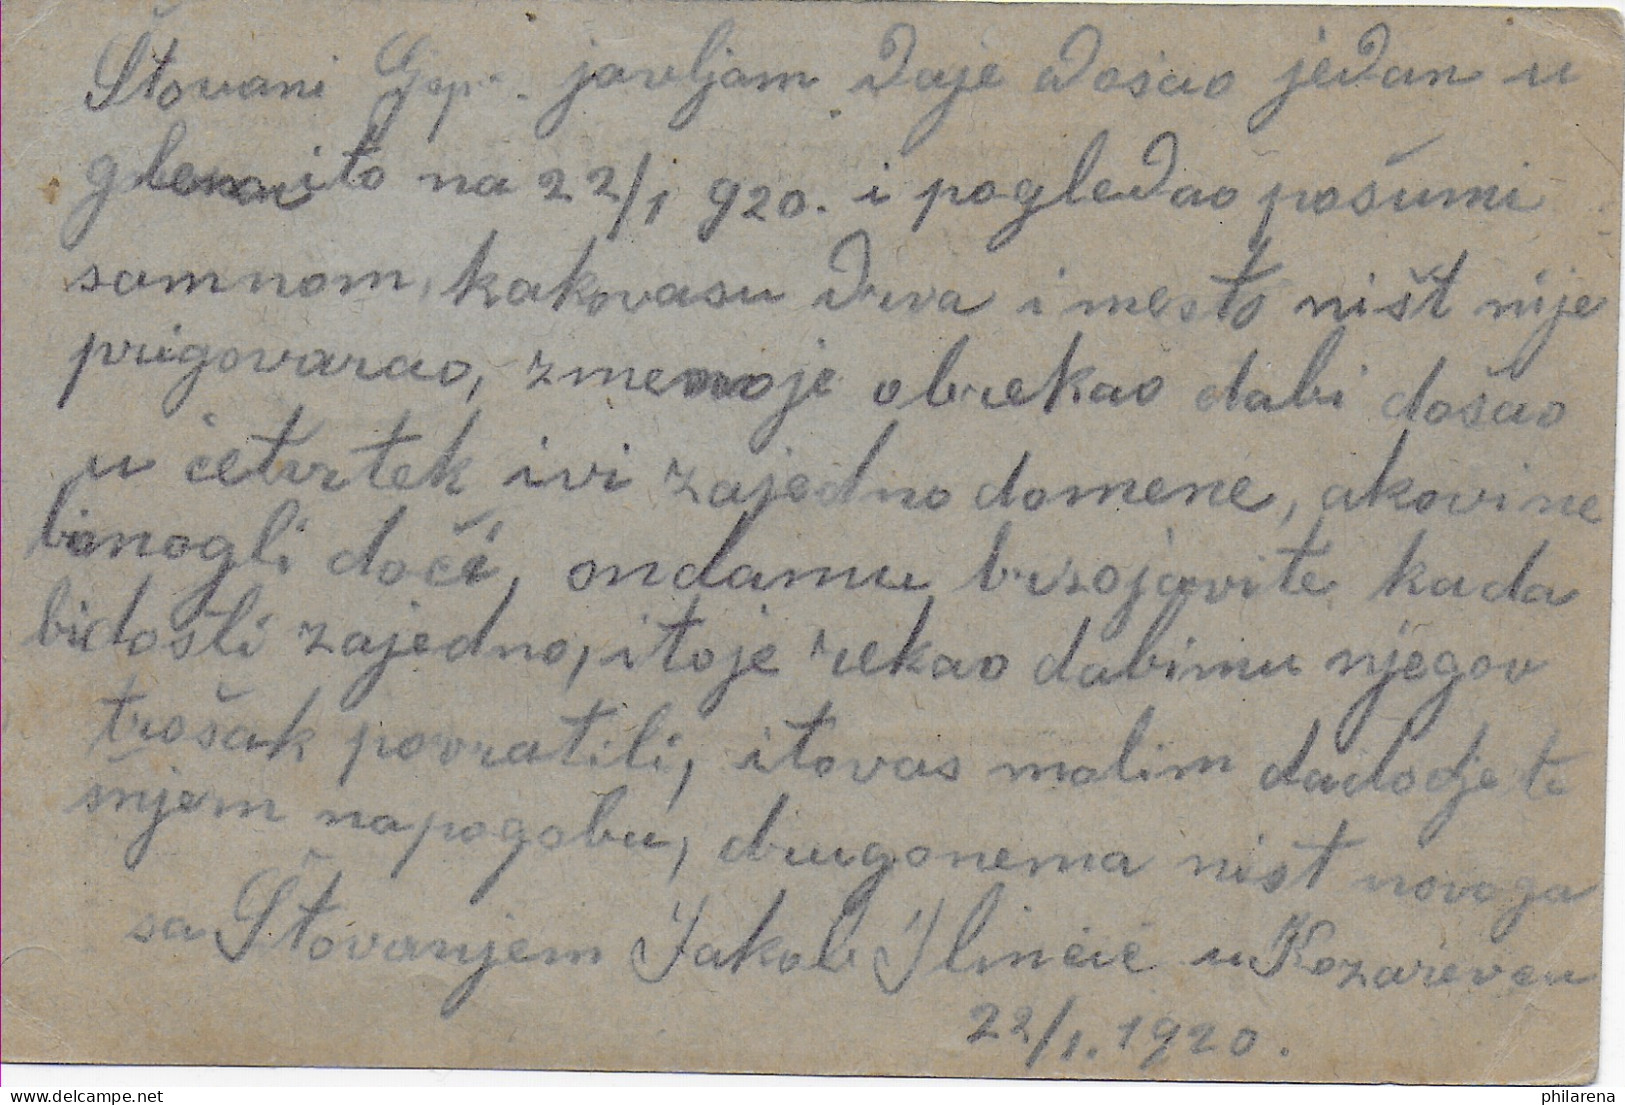 Štovani Gosp. javljam daje došao jedan u
ito na 22/1 920. i pogledao pošumi
samnom, kakovasu drva i mesto ništ nije
prigovarao, zmenoje obrekao dabi došao
u četvrtek ivi zajedno domene, akovi ne
bimogli doći, ondamu brzojavite kada
bidošli zajedno, itoje rekao dabimu njegov
trošak povratili, itovas molim dadodjete
šnjem napogobu, drugonema ništ novoga
sa Štovanjem Jakob Ilinčić u Kozarevcu
22/1. 1920.
philarena